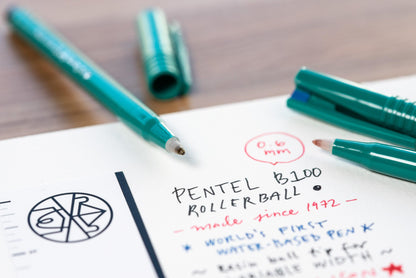 0.6
mm
PENTEL B100
ROLLERBALL
- made since 1972 -
WORLD'S FIRST
WATER-BASED PEN
~ Resin ball tip for
WIDTH ~